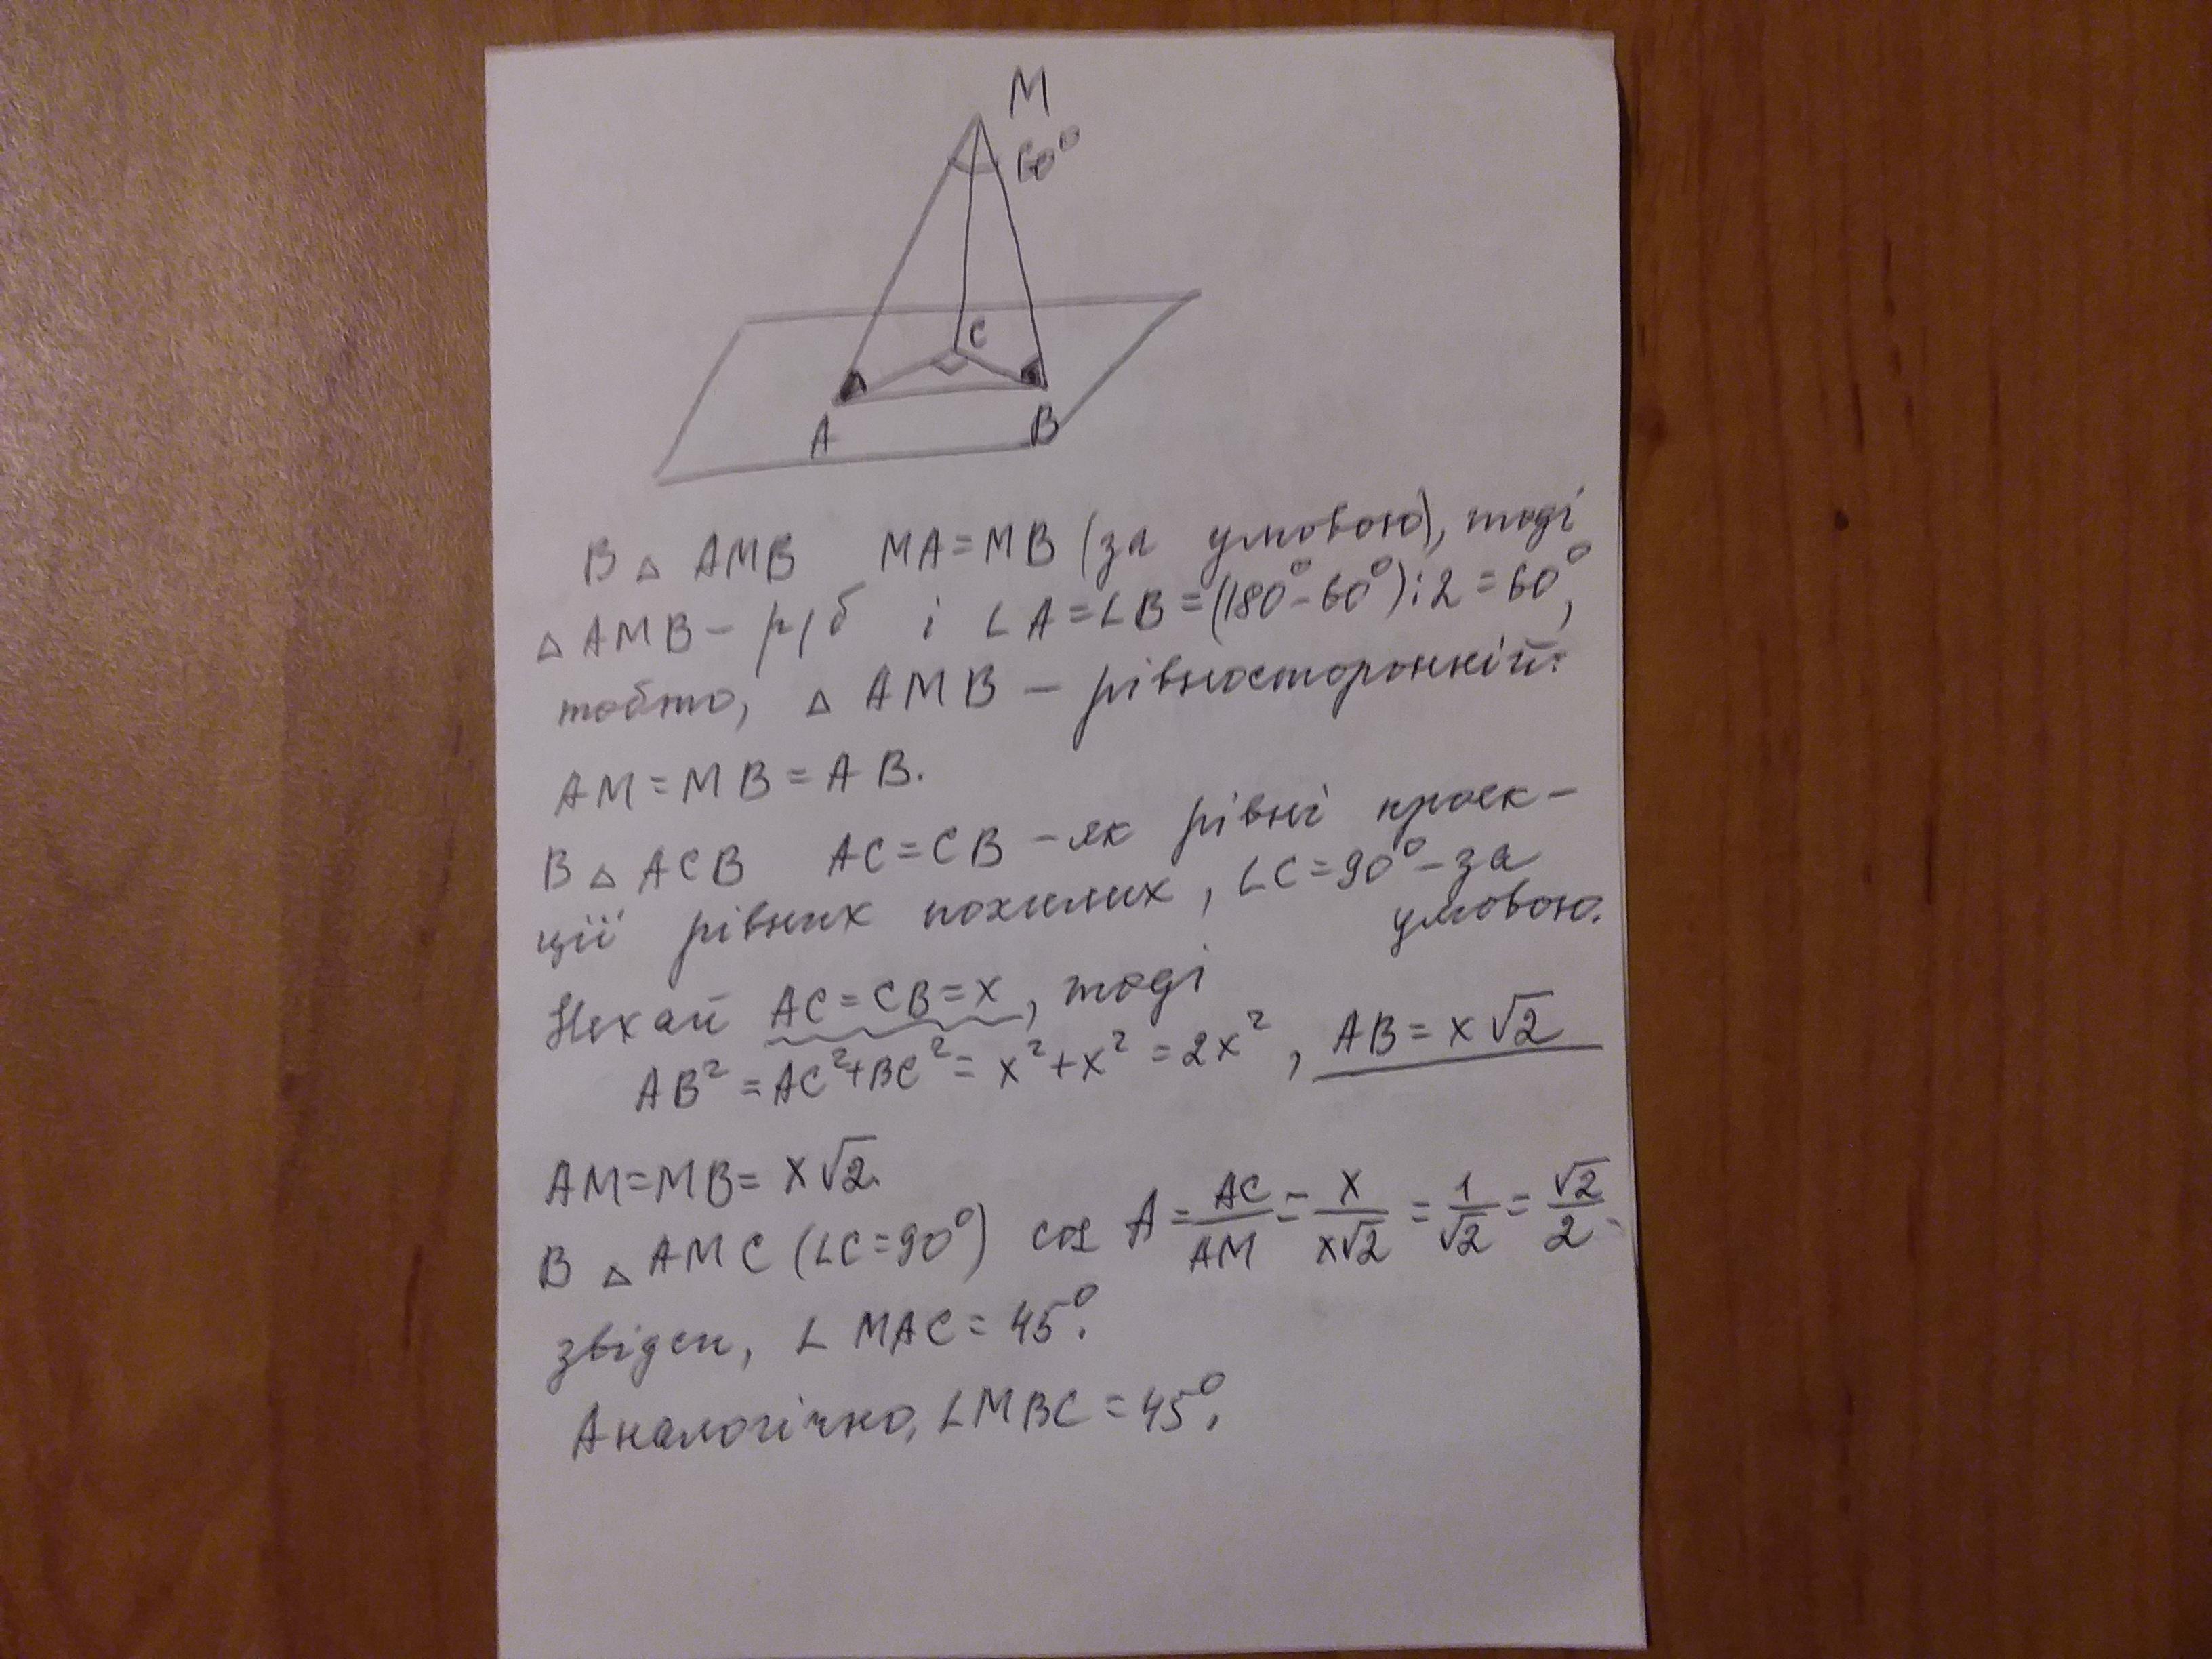 M
60°
C
A
B
В △ AMB MA=MB (за умовою), тоді
△ AMB – р/б і ∠A=∠B=(180°-60°):2=60°,
тобто, △ AMB – рівносторонній:
AM=MB=AB.
В △ ACB AC=CB – як рівні проек-
ції рівних похилих, ∠C=90° – за
умовою.
Нехай AC=CB=x, тоді
AB²=AC²+BC²=x²+x²=2x², AB=x√2
AM=MB=x√2.
В △ AMC (∠C=90°) cos A=AC/AM=x/x√2=1/√2=√2/2.
звідси, ∠ MAC=45°.
Аналогічно, ∠MBC=45°.